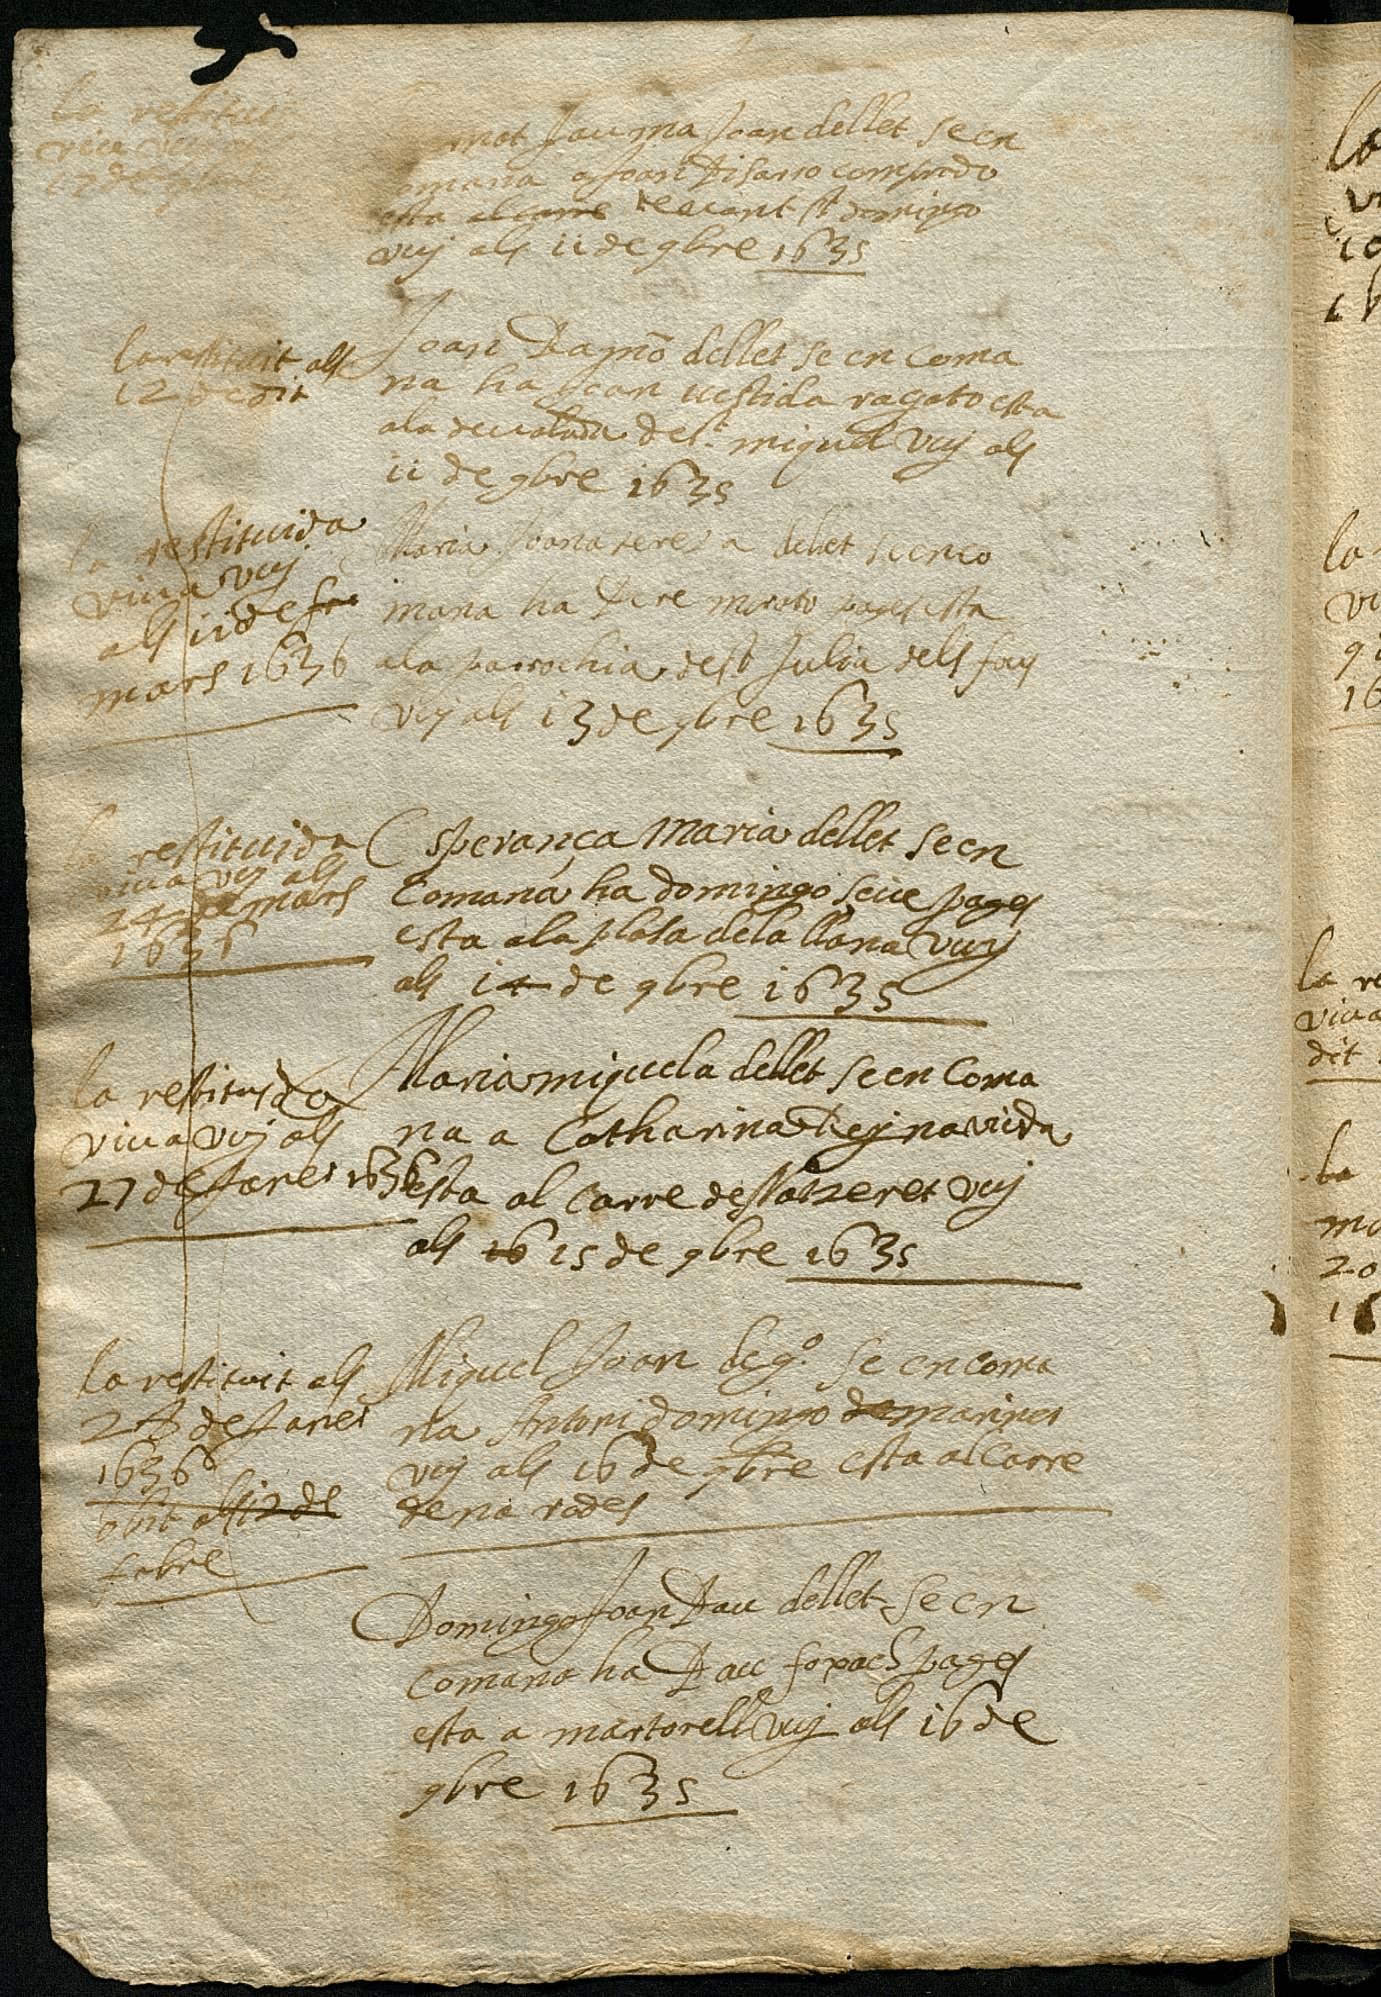 la restitui
viva vuy
17 de 9b
not Jauma Joan dellet se en
comana a Joan Disarro
esta al carre devant St domingo
vuy als 11 de 9bre 1635
la restituit als
12 de dit
Joan Ramō dellet se en coma
na ha Joan vestida ragato esta
a la devalada de St miquel vuy als
11 de 9bre 1635
la restituida
viva vuy
als 11 de fre
mars 1636
Maria Joana teresa dellet se en co
mana ha Pere moroto pages esta
a la parrochia de St Julia dels
vuy als 13 de 9bre 1635
la restituida
viva vuy als
24 de mars
1636
Esperança Maria dellet se en
comana ha domingo seve pages
esta a la plasa de la llana vuy
als 14 de 9bre 1635
la restituida
viva vuy als
27 de Janer 1636
Maria miquela dellet se en coma
na a Catharina viuda
esta al carre des llatzeret vuy
als 16 15 de 9bre 1635
la restituit als
28 de Janer
1636
obit als 12 de
febre
Miquel Joan de go se en coma
na Antoni domingo de mariner
vuy als 16 de 9bre esta al Carre
de na rodes
Domingo Joan Pau dellet se en
comana ha Pau foxachs pages
esta a martorell vuy als 16 de
9bre 1635
la
la
la re
viva
dit
la